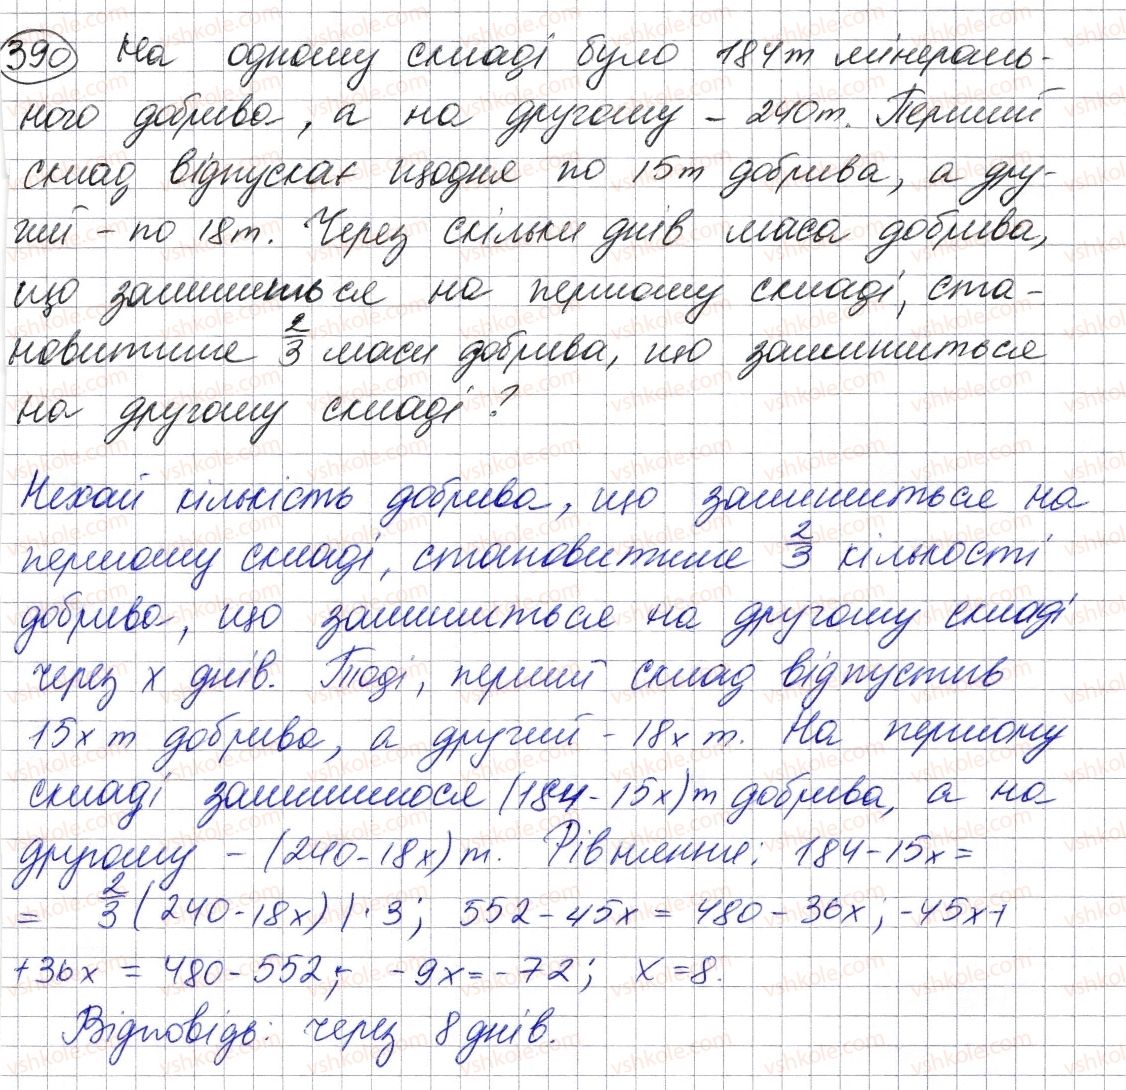 390 На одному складі було 184т мінераль-
ного добрива, а на другому – 240т. Перший
склад відпускає щодня по 15т добрива, а дру-
гий – по 18т. Через скільки днів маса добрива,
що залишиться на першому складі, ста-
новитиме 2/3 маси добрива, що залишиться
на другому складі?
Нехай кількість добрива, що залишиться на
першому складі, становитиме 2/3 кількості
добрива, що залишиться на другому складі
через х днів. Тоді, перший склад відпустив
15х т добрива, а другий – 18х т. На першому
складі залишилося (184-15х)т добрива, а на
другому – (240-18х)т. Рівняння: 184-15х=
= 2/3(240-18х) |·3; 552-45х=480-36х; -45х+
+36х=480-552; -9х=-72; х=8.
Відповідь: через 8 днів.